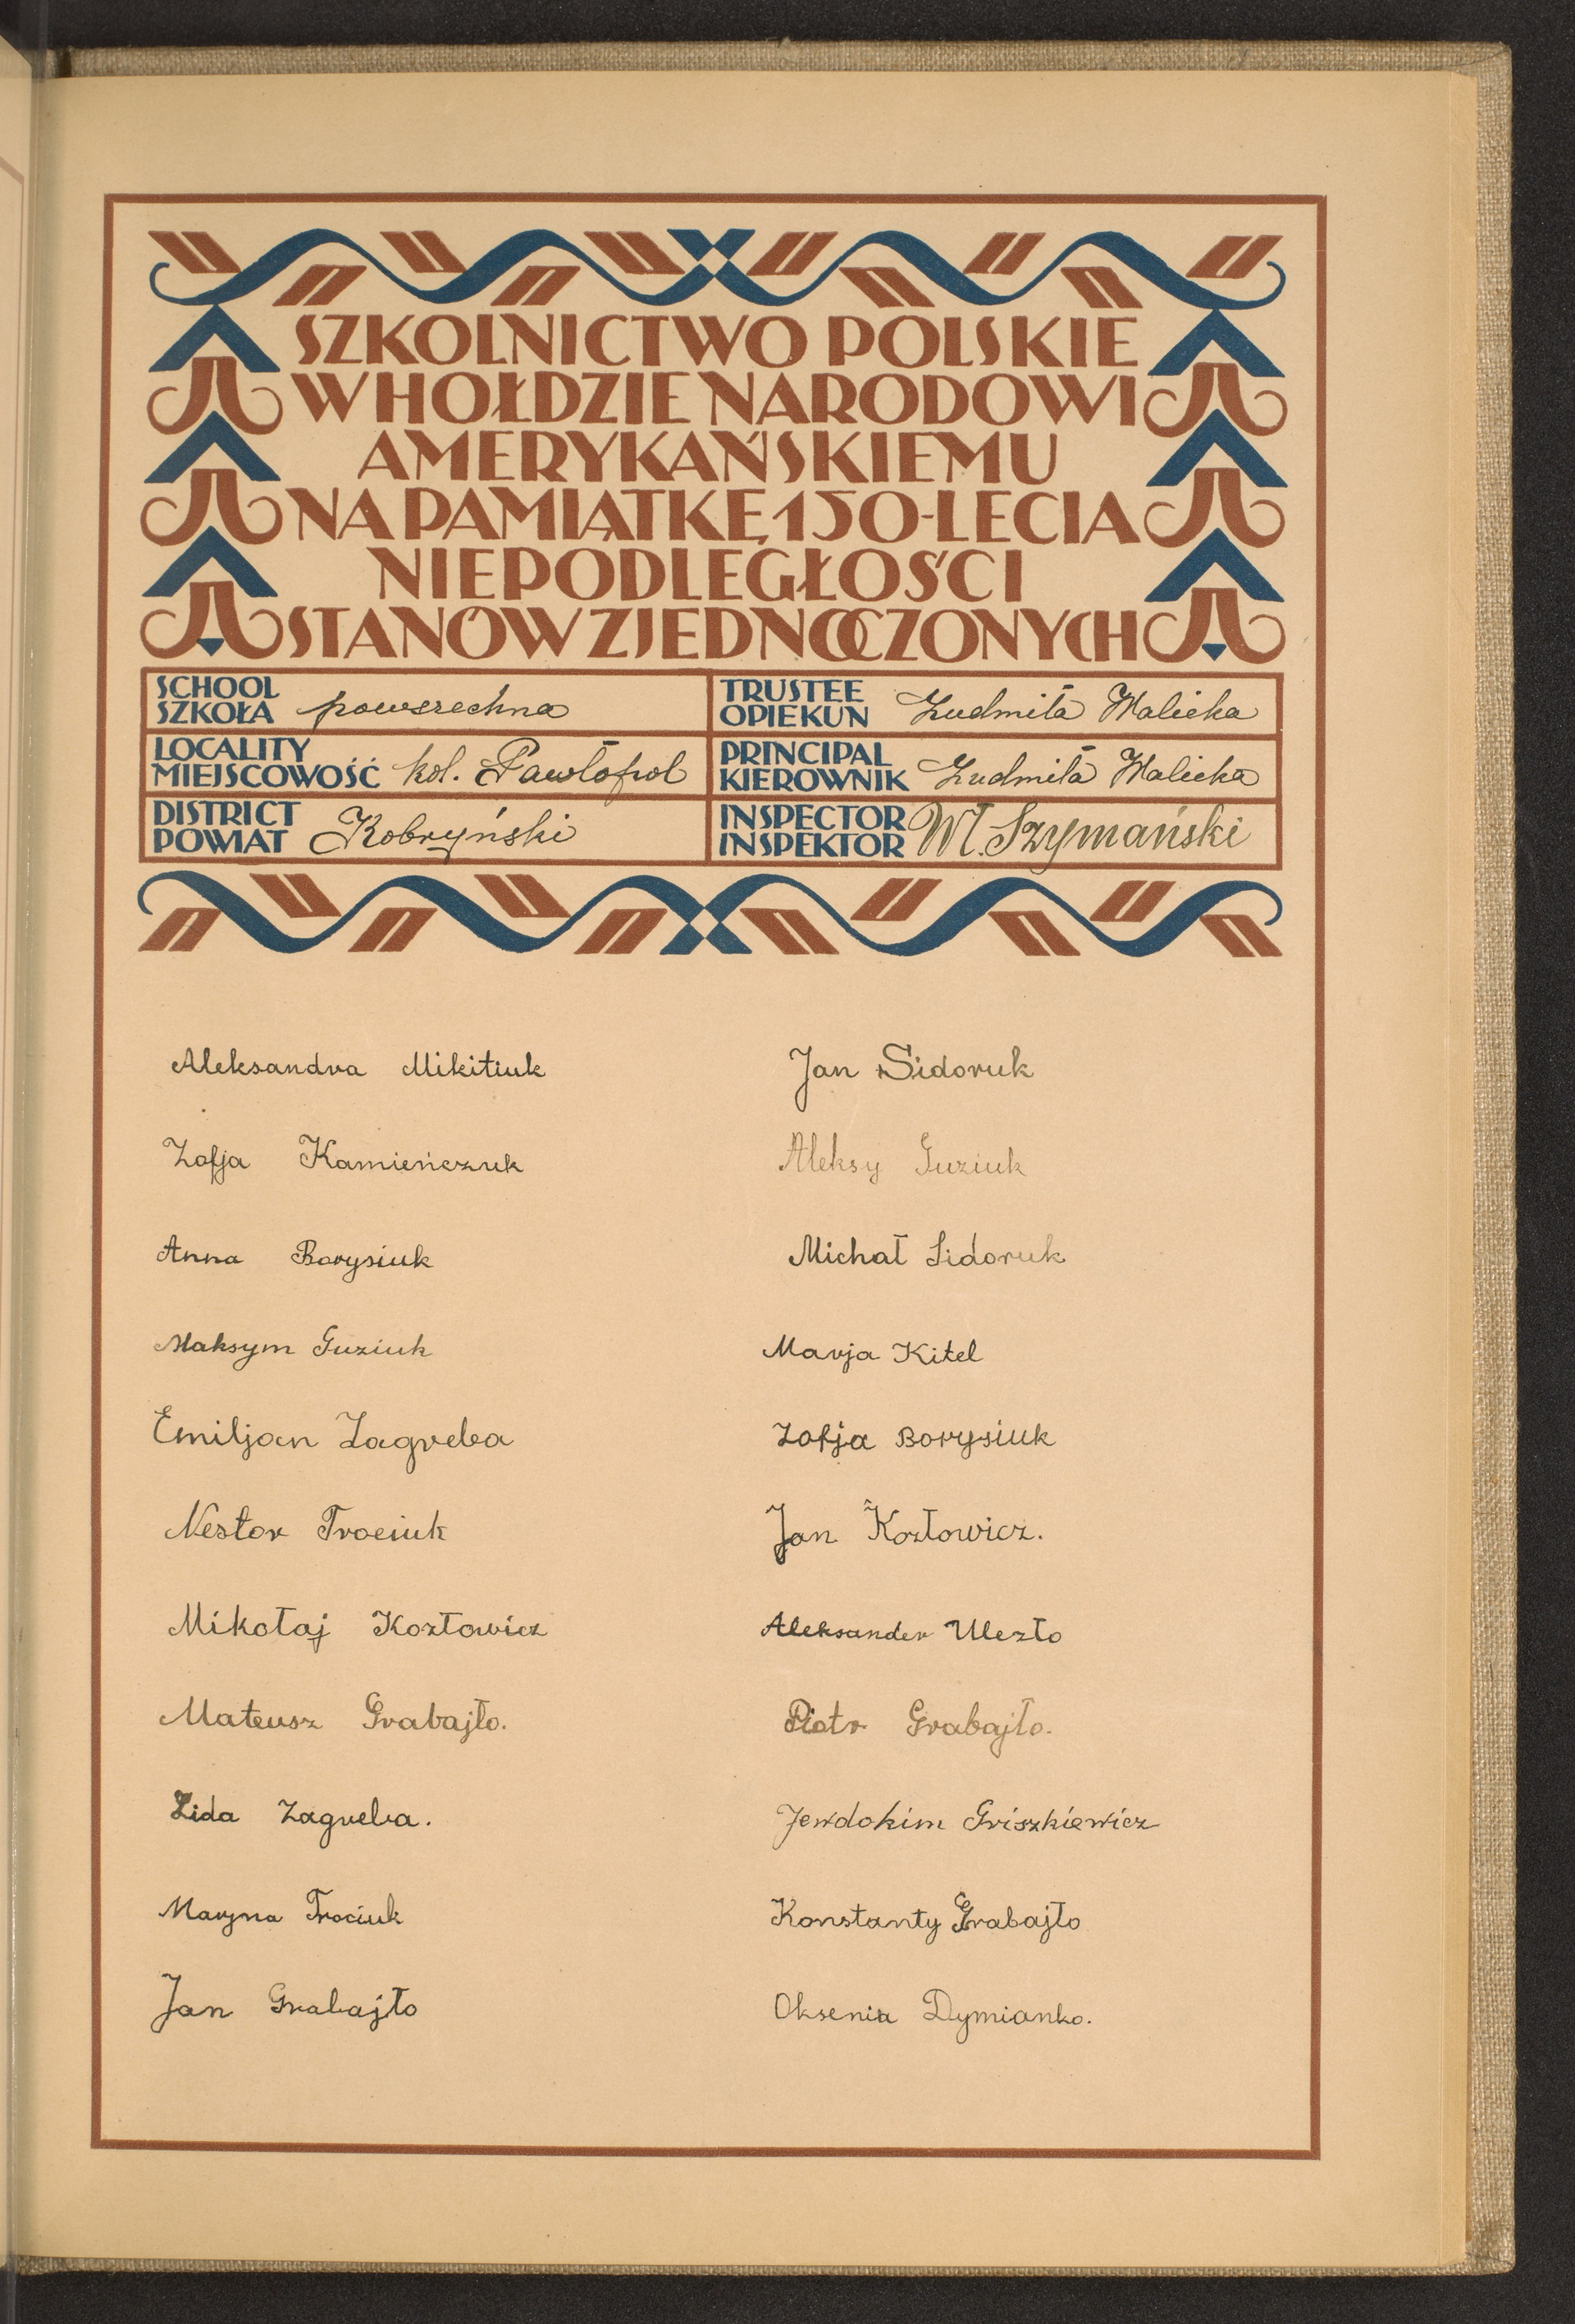 SZKOLNICTWO POLSKIE
W HOŁDZIE NARODOWI
AMERYKAŃSKIEMU
NA PAMIĄTKĘ 150-LECIA
NIEPODLEGŁOŚCI
STANÓW ZJEDNOCZONYCH
SCHOOL
SZKOŁA powszechna
LOCALITY
MIEJSCOWOŚĆ kol. Pawłopol
DISTRICT
POWIAT Kobryński
TRUSTEE
OPIEKUN Ludmiła Malicka
PRINCIPAL
KIEROWNIK Ludmiła Malicka
INSPECTOR
INSPEKTOR Wł. Szymański
Aleksandra Mikitiuk
Zofja Kamieńczuk
Anna Borysiuk
Maksym Guziuk
Emiljan Zagreba
Nestor Trociuk
Mikołaj Kozłowicz
Mateusz Grabajło.
Lida Zagreba.
Maryna Trociuk
Jan Grabajło
Jan Sidoruk
Aleksy Guziuk
Michał Sidoruk
Marja Kitel
Zofja Borysiuk
Jan Kozłowicz.
Aleksander Ulezło
Piotr Grabajło.
Jewdokim Griszkiewicz
Konstanty Grabajło
Oksenia Dymianko.